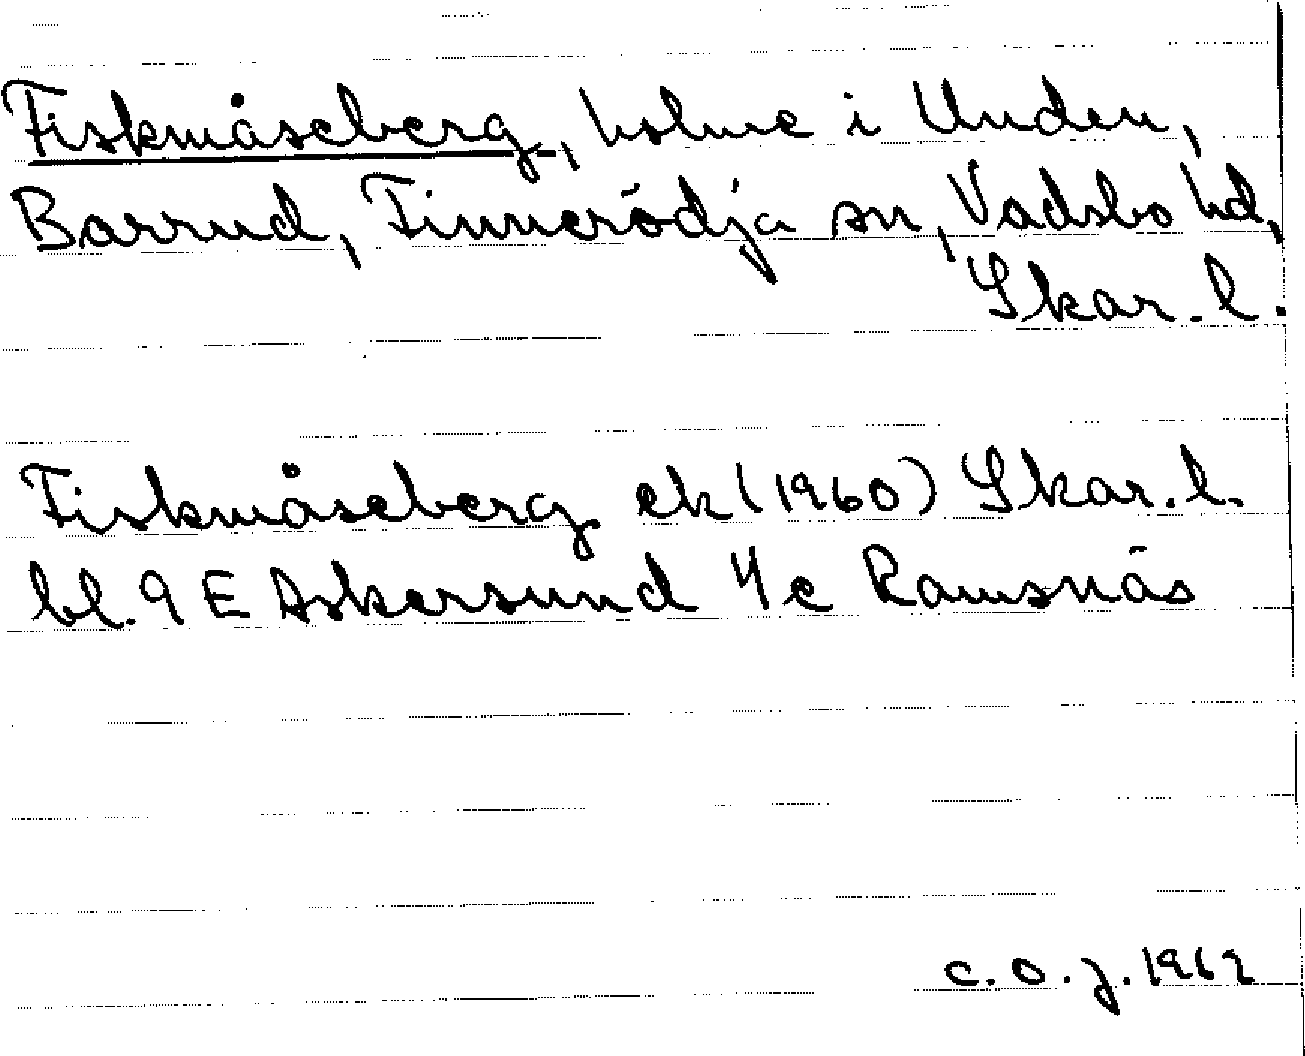 Fiskmåseberg, holme i Unden,
Barrud, Finnerödja sn, Vadsbo hd,
Skar. l.
Fiskmåseberg ek (1960) Skar. l.
bl. 9 E Askersund 4c Ramsnäs
C. O. J. 1962